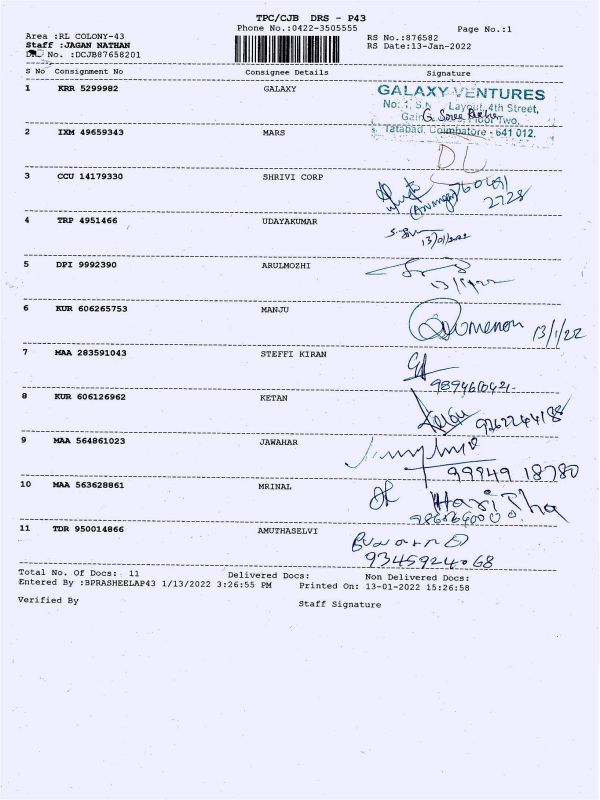 TPC/CJB DRS - P43
Phone No.:0422-3505555 Page No.:1
Area :RL COLONY-43 RS No.:876582
Staff :JAGAN NATHAN RS Date:13-Jan-2022
No. :DCJB87658201
S No Consignment No Consignee Details Signature
1 KRR 5299982 GALAXY
GALAXY VENTURES
No: 1, S.N. Layout, 4th Street,
Floor Two,
Tatabad, Coimbatore - 641 012.
2 IXM 49659343 MARS
DL
3 CCU 14179330 SHRIVI CORP
2728
4 TRP 4951466 UDAYAKUMAR
13/01/2022
5 DPI 9992390 ARULMOZHI
13/1/22
6 KUR 606265753 MANJU
13/1/22
7 MAA 283591043 STEFFI KIRAN
8 KUR 606126962 KETAN
Ketan 9262244188
9 MAA 564861023 JAWAHAR
99949 18780
10 MAA 563628861 MRINAL
11 TDR 950014866 AMUTHASELVI
9345924068
Total No. Of Docs: 11 Delivered Docs: Non Delivered Docs:
Entered By :BPRASHEELAP43 1/13/2022 3:26:55 PM Printed On: 13-01-2022 15:26:58
Verified By Staff Signature